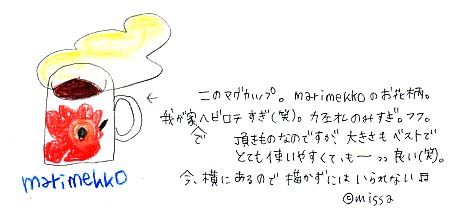 このマグカップ。marimekkoのお花柄。
我が家でヘビロテすぎ(笑)。カエルのみすぎ。フフ。
頂きものなのですが、大きさもベストで
とても使いやすくて、もーっっ良い(笑)。
今、横にあるので描かずにはいられない♫
©missa
marimekko